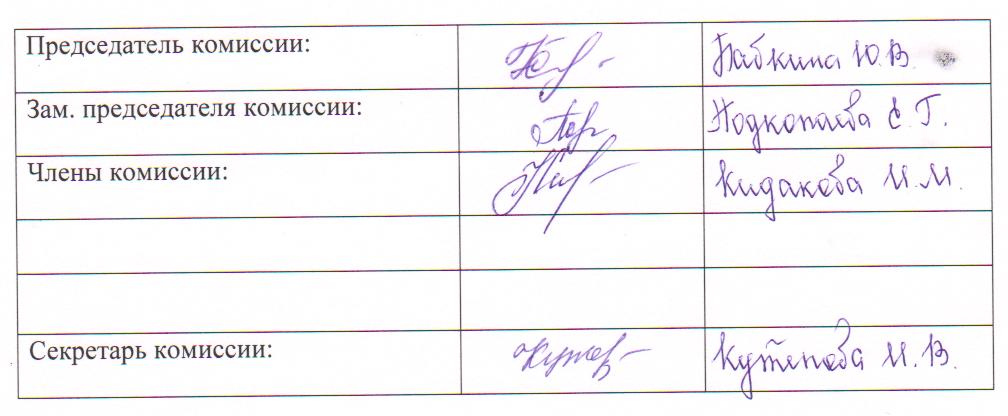 Председатель комиссии: Бабкина Ю.В.
Зам. председателя комиссии: Подкопаева Е.Г.
Члены комиссии: Кидакова И.М.
Секретарь комиссии: Кутепова И.В.